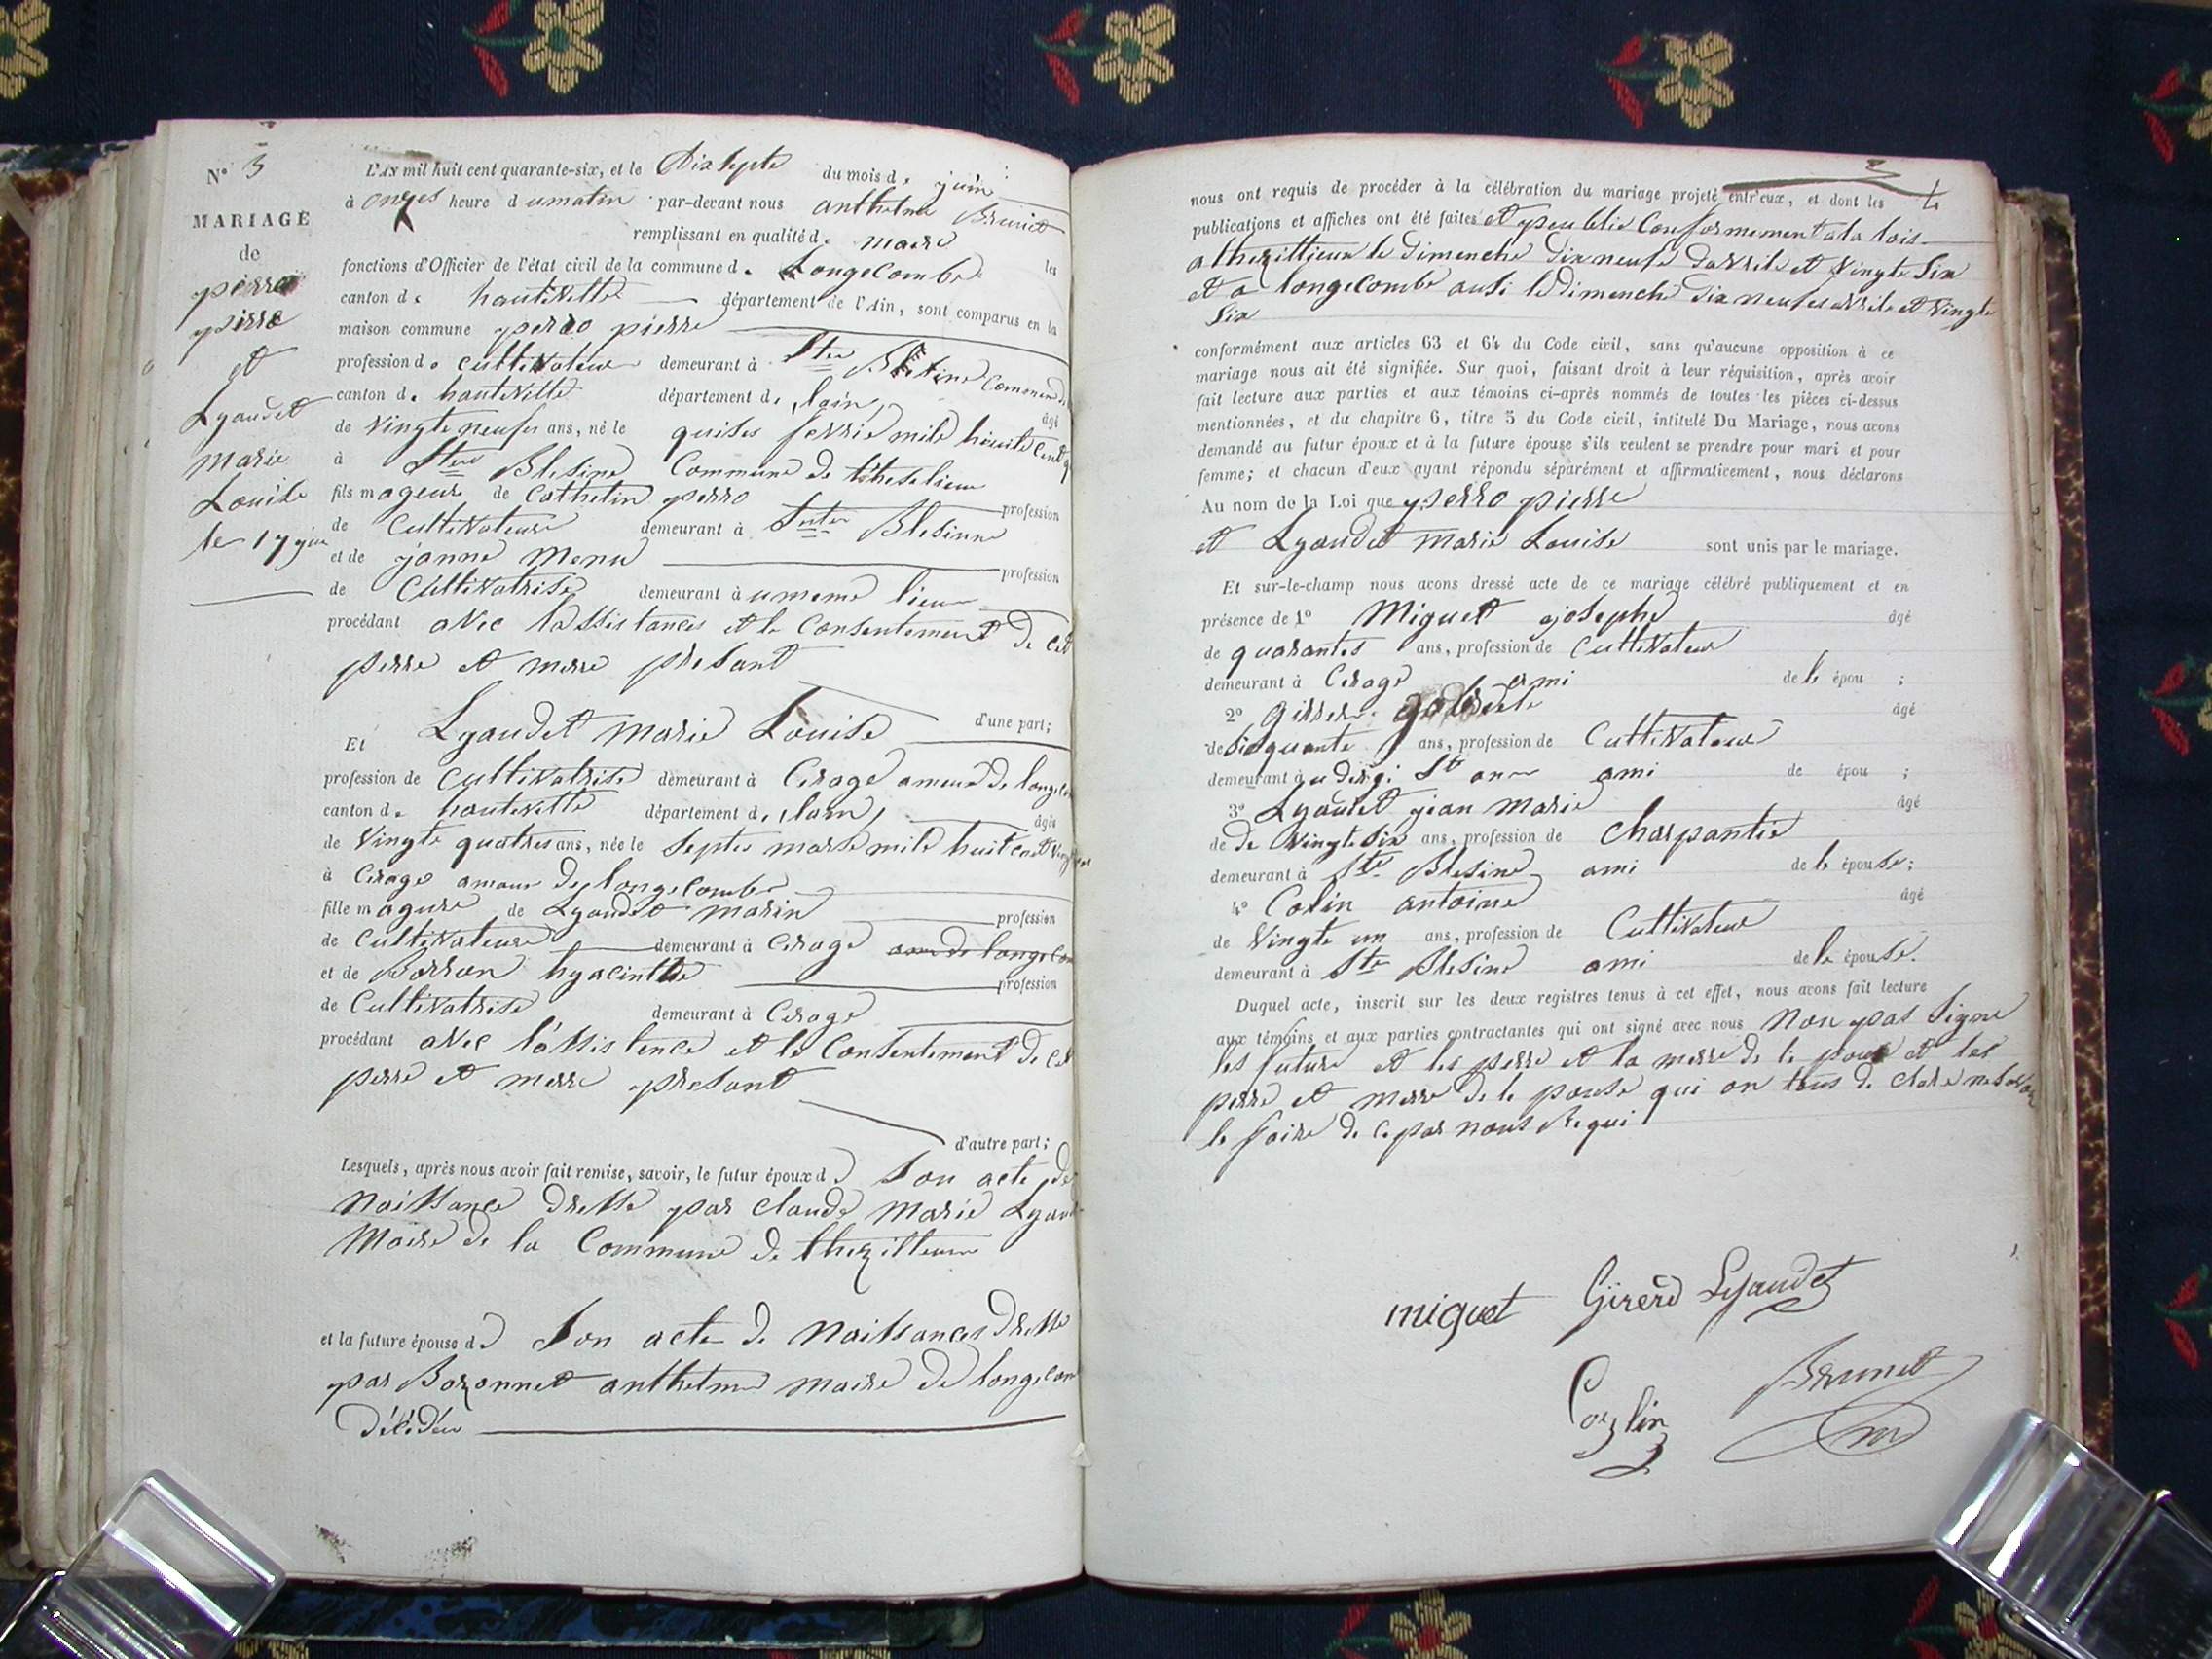 N° 3
MARIAGE
de
pierre
pirre
et
Lyaudet
marie
Louise
le 17 juin
L'AN mil huit cent quarante-six, et le Dix septe du mois de juin
à onzes heure d umatin par-devant nous anthelme Brunet
remplissant en qualité de maire les
fonctions d'Officier de l'état civil de la commune de Longecombe
canton de hauteville département de l'Ain, sont comparus en la
maison commune perro pierre
profession de cultivateur demeurant à Ste Blesine Commune de
canton de hauteville département de lain, âgé
de Vingte neufes ans, né le quises fevrie mile huite cent
à Ste Blesine Commune de theselieu
fils mageur de Cathelin perro profession
de Cultivateure demeurant à Sete Blesinne
et de janne Menu profession
de Cultivatrise demeurant à u meme lieu
procédant avec lassistances et le Consentement de ces
perre et merre presant
d'une part;
Et Lyaudet marie Louise
profession de cultivatrise demeurant à Cerage ameau de longe
canton de hauteville département de lain, âgée
de Vingte quatres ans, née le septes marse mile huit cent
à Cerage amau de longecombe
fille magure de Lyaudet marin profession
de Cultivateure demeurant à Cerage
et de Borron hyacinthe profession
de Cultivatrise demeurant à Cerage
procédant avec l'assistence et le Consentement de ces
perre et merre presant
d'autre part;
Lesquels, après nous avoir fait remise, savoir, le futur époux de Son acte de
naissance dresse par claude marie Lyau
Maire de la Commune de thezillieu
et la future épouse de Son acte de naissances dresse
par Bozonnet anthelme maire de longecom
décédéu
3
nous ont requis de procéder à la célébration du mariage projeté entr'eux, et dont les
publications et affiches ont été faites et peublie Conformement a la lois
a thezillieux le Dimenche dix neufe davrile et Vingte Six
et a longecombe ausi le Dimenche dix neufes avrile et Vingte
Six
conformément aux articles 63 et 64 du Code civil, sans qu'aucune opposition à ce
mariage nous ait été signifiée. Sur quoi, faisant droit à leur réquisition, après avoir
fait lecture aux parties et aux témoins ci-après nommés de toutes les pièces ci-dessus
mentionnées, et du chapitre 6, titre 5 du Code civil, intitulé Du Mariage, nous avons
demandé au futur époux et à la future épouse s'ils veulent se prendre pour mari et pour
femme; et chacun d'eux ayant répondu séparément et affirmativement, nous déclarons
Au nom de la Loi que perro pierre
et Lyaudet marie Louise sont unis par le mariage.
Et sur-le-champ nous avons dressé acte de ce mariage célébré publiquement et en
présence de 1° Miguet josephe âgé
de quarantes ans, profession de Cultivateur
demeurant à Cerage ami de le épou ;
2° girrer âgé
de Sinquante ans, profession de Cultivateur
demeurant à ami de épou ;
3° Lyaudet jean marie âgé
de de Vingte Six ans, profession de charpantie
demeurant à Ste Blesine ami de le épouse;
4° Colin antoine âgé
de Vingte un ans, profession de Cultivateur
demeurant à Ste Blesine ami de le épouse.
Duquel acte, inscrit sur les deux registres tenus à cet effet, nous avons fait lecture
aux témoins et aux parties contractantes qui ont signé avec nous Non pas Signe
les future et les perre et la merre de le poux et les
perre et merre de le pouse qui on tous de clare ne savoir
le faire de ce par nous Requi
miguet Girerd Lyaudet
Cozlin Brunet